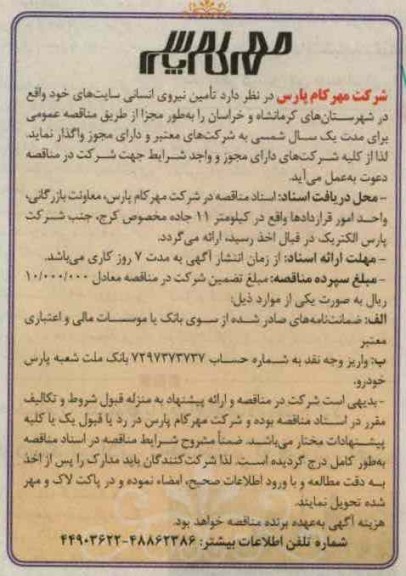 مهرکام پارس
شرکت مهرکام پارس در نظر دارد تأمین نیروی انسانی سایت‌های خود واقع
در شهرستان‌های کرمانشاه و خراسان را به‌طور مجزا از طریق مناقصه عمومی
برای مدت یک سال شمسی به شرکت‌های معتبر و دارای مجوز واگذار نماید.
لذا از کلیه شرکت‌های دارای مجوز و واجد شرایط جهت شرکت در مناقصه
دعوت به‌عمل می‌آید.
- محل دریافت اسناد: اسناد مناقصه در شرکت مهرکام پارس، معاونت بازرگانی،
واحد امور قراردادها واقع در کیلومتر ۱۱ جاده مخصوص کرج، جنب شرکت
پارس الکتریک در قبال اخذ رسید، ارائه می‌گردد.
- مهلت ارائه اسناد: از زمان انتشار آگهی به مدت ۷ روز کاری می‌باشد.
- مبلغ سپرده مناقصه: مبلغ تضمین شرکت در مناقصه معادل ۱۰/۰۰۰/۰۰۰
ریال به صورت یکی از موارد ذیل:
الف: ضمانت‌نامه‌های صادر شده از سوی بانک یا موسسات مالی و اعتباری
معتبر
ب: واریز وجه نقد به شماره حساب ۷۲۹۷۳۷۳۷۳۷ بانک ملت شعبه پارس
خودرو.
- بدیهی است شرکت در مناقصه و ارائه پیشنهاد به منزله قبول شروط و تکالیف
مقرر در اسناد مناقصه بوده و شرکت مهرکام پارس در رد یا قبول یک یا کلیه
پیشنهادات مختار می‌باشد. ضمناً مشروح شرایط مناقصه در اسناد مناقصه
به‌طور کامل درج گردیده است. لذا شرکت‌کنندگان باید مدارک را پس از اخذ
به دقت مطالعه و با ورود اطلاعات صحیح، امضاء نموده و در پاکت لاک و مهر
شده تحویل نمایند.
هزینه آگهی به‌عهده برنده مناقصه خواهد بود.
شماره تلفن اطلاعات بیشتر: ۴۸۸۶۲۳۸۶-۴۴۹۰۳۶۲۲